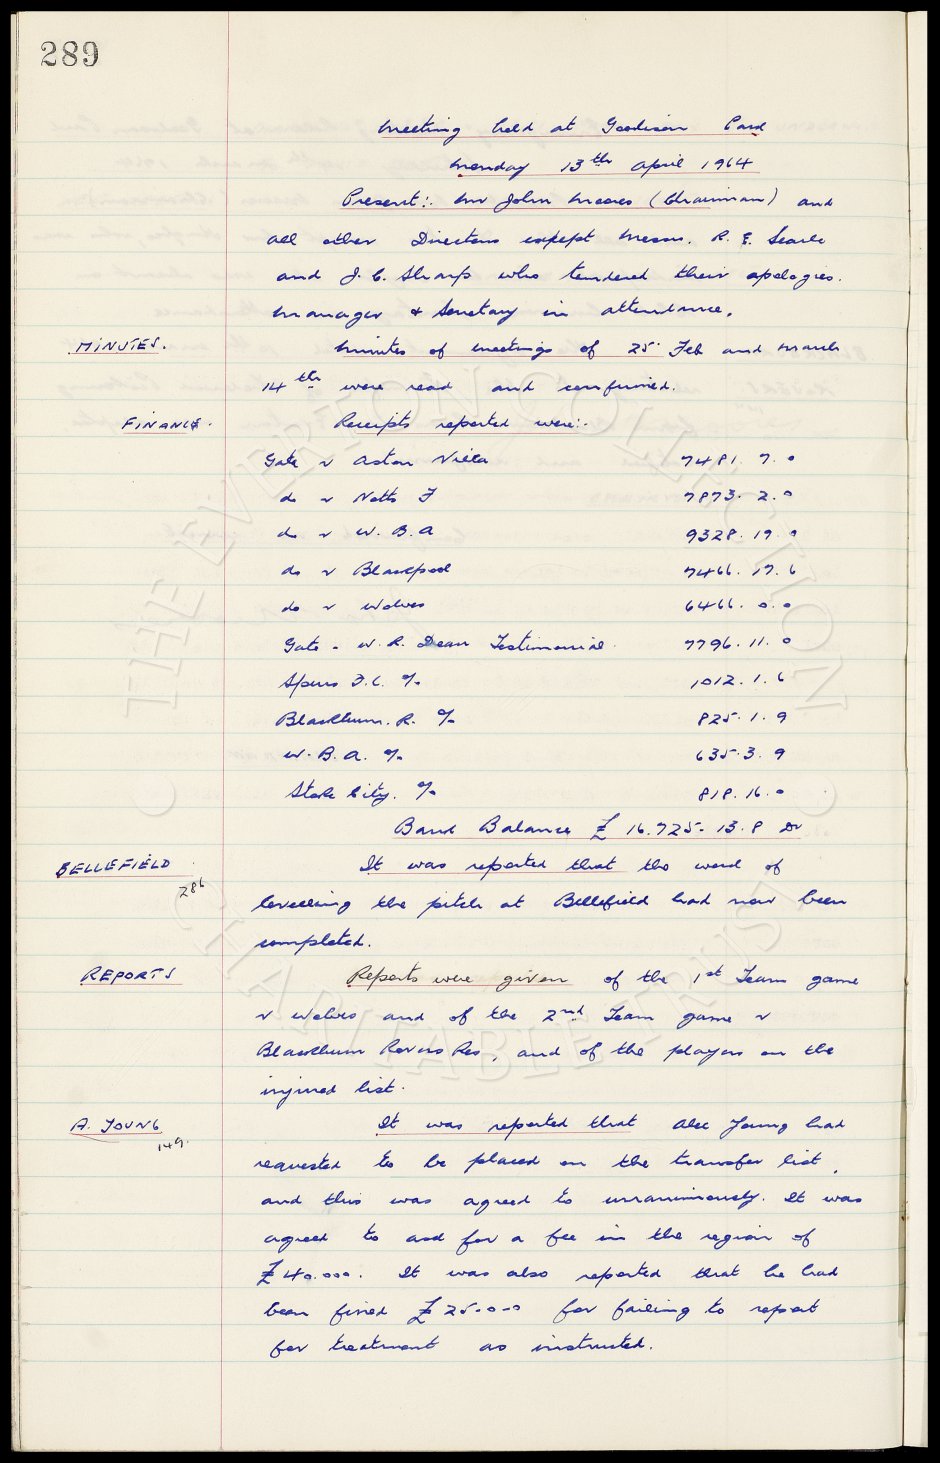 289
Meeting held at Goodison Park
Monday 13th April 1964
Present:. Mr John Moores (Chairman) and
all other Directors except Messrs. R. E. Searle
and J. C. Sharp who tendered their apologies.
Manager & Secretary in attendance.
MINUTES. Minutes of meetings of 25 Feb and March
14th were read and confirmed.
FINANCE. Receipts reported were:-
Gate v Aston Villa 7481. 7. 0
do v Notts F 7873. 2. 0
do v W. B. A 9328. 19. 0
do v Blackpool 7466. 17. 6
do v Wolves 6466. 0. 0
Gate - W. R. Dean Testimonial 7796. 11. 0
Spurs F.C. % 1012. 1. 6
Blackburn. R. % 825. 1. 9
W. B. A. % 635. 3. 9
Stoke City. % 818. 16. 0
Bank Balance £ 16.725. 13. 8 Dr
BELLEFIELD 286 It was reported that the work of
levelling the pitch at Bellefield had now been
completed.
REPORTS Reports were given of the 1st Team game
v Wolves and of the 2nd Team game v
Blackburn Rovers Res, and of the players on the
injured list.
A. YOUNG 149. It was reported that Alex Young had
requested to be placed on the transfer list,
and this was agreed to unanimously. It was
agreed to ask for a fee in the region of
£40.000. It was also reported that he had
been fined £25-0-0 for failing to report
for treatment as instructed.
© THE EVERTON COLLECTION ©
CHARITABLE TRUST